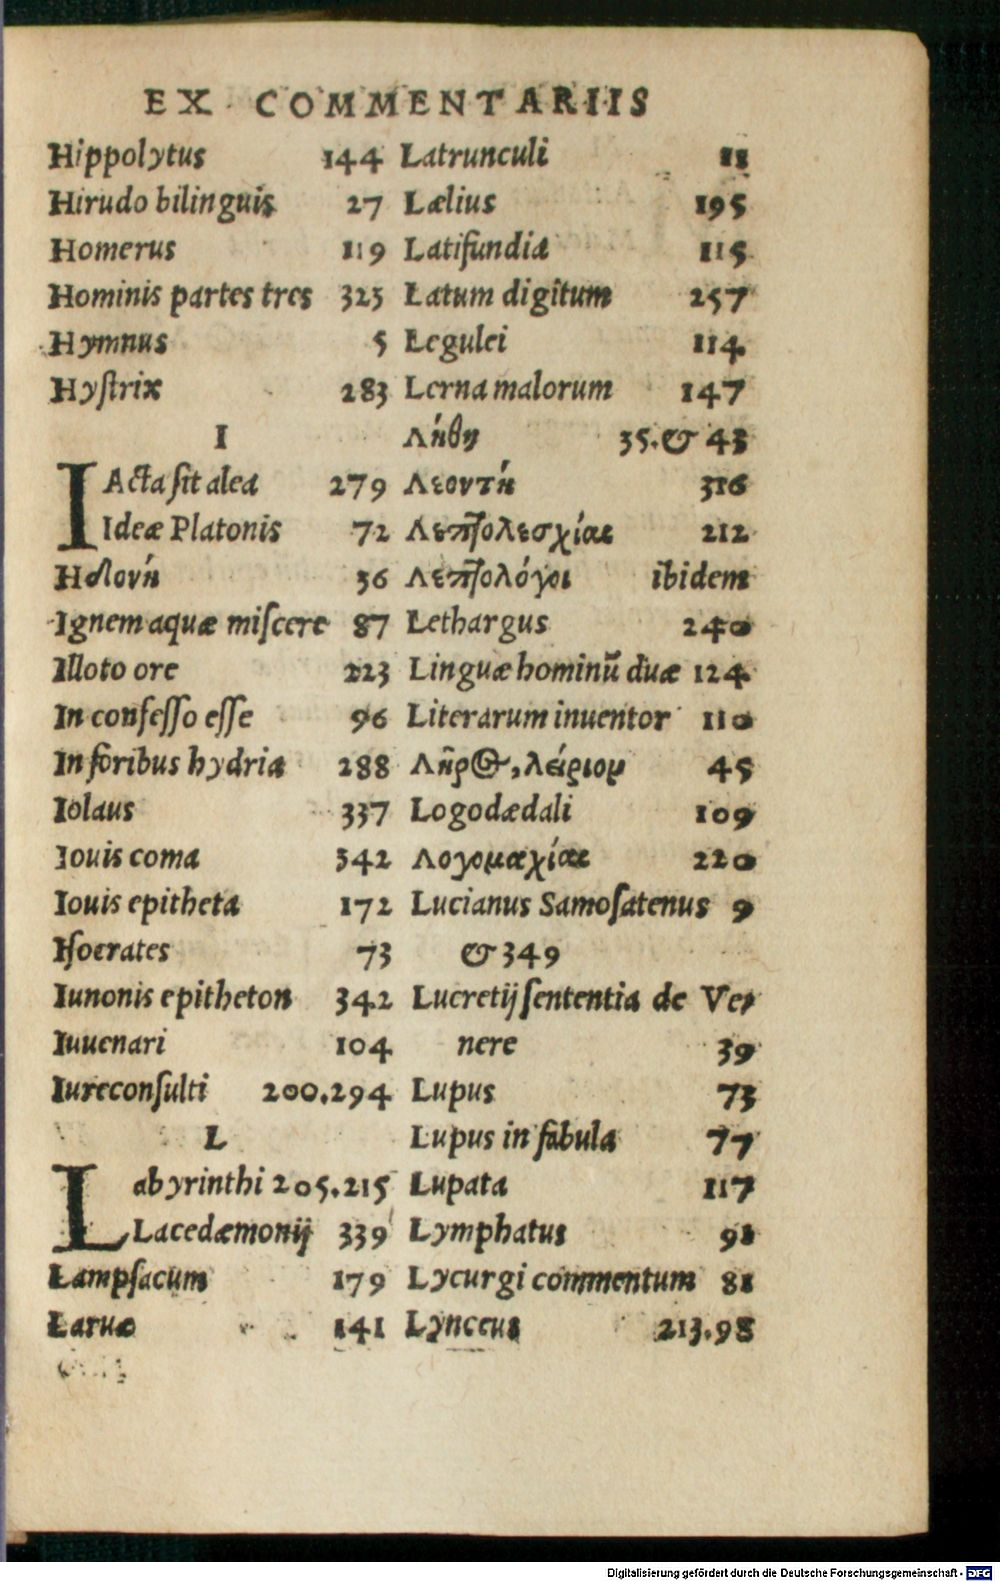 EX COMMENTARIIS
Hippolytus 144
Hirudo bilinguis 27
Homerus 119
Hominis partes tres 323
Hymnus 5
Hyſtrix 283
I
IActa ſit alea 279
Ideæ Platonis 72
Ηδονή 36
Ignem aquæ miſcere 87
Illoto ore 223
In confeſſo eſſe 96
In foribus hydria 288
Iolaus 337
Iouis coma 342
Iouis epitheta 172
Iſocrates 73
Iunonis epitheton 342
Iuuenari 104
Iureconſulti 200.294
L
Labyrinthi 205.215
Lacedæmonij 339
Lampſacum 179
Laruæ 141
Latrunculi 11
Lælius 195
Latifundia 115
Latum digitum 257
Legulei 114
Lerna malorum 147
Λήθη 35.& 43
Λεοντή 316
Λεπτολεσχίαι 212
Λεπτολόγοι ibidem
Lethargus 240
Linguæ hominũ duæ 124
Literarum inuentor 110
Λῆρος, λείριον 45
Logodædali 109
Λογομαχίαι 220
Lucianus Samoſatenus 9
& 349
Lucretij ſententia de Ve-
nere 39
Lupus 73
Lupus in fabula 77
Lupata 117
Lymphatus 98
Lycurgi commentum 81
Lynceus 213.98
Digitalisierung gefördert durch die Deutsche Forschungsgemeinschaft - DFG